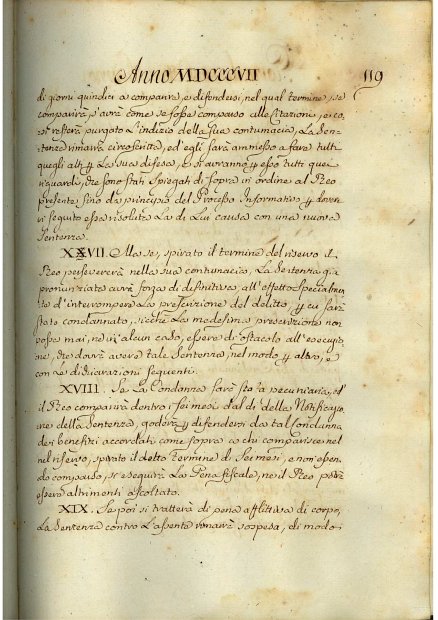 Anno MDCCCVII
119
di giorni quindici a comparire, e difendersi, nel qual termine, se
comparirà s'avrà come se fosse comparso alle Citazioni, e co,
sì resterà purgato l'indizio della sua contumacia, La Sen-
tenza rimarrà circoscritta, ed egli sarà ammesso a fare tutti
quegli atti p la sua difesa, e si avranno p esso tutti quei
riguardi, che sono stati spiegati di sopra in ordine al Reo
presente sino da principio del Processo Informativo p dover,
vi seguito essa risoluta la di Lui causa con una nuova
Sentenza.
XXVII. Ma se, spirato il termine del riservo il
Reo persevererà nella sua contumacia, La Sentenza già
pronunziata avrà forza di difinitiva, all'effetto specialmente
d'interrompere la prescrizione del delitto, p cui sarà
stato condannato, sicchè La medesima prescrizione non
possa mai, nè in alcun caso, essere di ostacolo all'esecuzio,
ne, che dovrà avere tale Sentenza, nel modo p altro, e
con le dichiarazioni seguenti.
XVIII. Se La Condanna sarà stata pecuniaria, ed
il Reo comparirà dentro i sei mesi dal dì della Notificazio,
ne della Sentenza, goderà p difendersi da tal condanna
dei benefizi accordati come sopra a chi comparisce nel
nel riservo, spirato il detto termine di Sei mesi, e non essen,
do comparso, si eseguirà La Pena fiscale, ne il Reo potrà
essere altrimenti ascoltato.
XIX. Se poi si tratterà di pena afflittiva di corpo,
La Sentenza contro L'assente rimarrà sospesa, di modo-